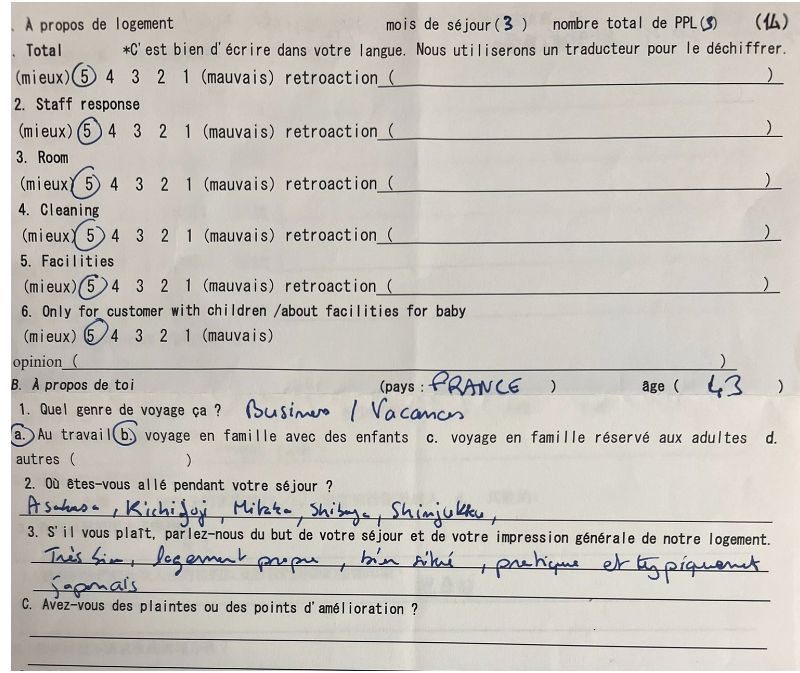 . À propos de logement mois de séjour(3 ) nombre total de PPL( ) (14)
. Total *C'est bien d'écrire dans votre langue. Nous utiliserons un traducteur pour le déchiffrer.
(mieux) 5 4 3 2 1 (mauvais) retroaction ( )
2. Staff response
(mieux) 5 4 3 2 1 (mauvais) retroaction ( )
3. Room
(mieux) 5 4 3 2 1 (mauvais) retroaction ( )
4. Cleaning
(mieux) 5 4 3 2 1 (mauvais) retroaction ( )
5. Facilities
(mieux) 5 4 3 2 1 (mauvais) retroaction ( )
6. Only for customer with children /about facilities for baby
(mieux) 5 4 3 2 1 (mauvais)
opinion ( )
B. À propos de toi (pays : FRANCE ) âge ( 43 )
1. Quel genre de voyage ça ? Business / Vacances
a. Au travail b. voyage en famille avec des enfants c. voyage en famille réservé aux adultes d.
autres ( )
2. Où êtes-vous allé pendant votre séjour ?
Asakusa, Kichijoji, Mitaka, Shibuya, Shinjukku,
3. S'il vous plaît, parlez-nous du but de votre séjour et de votre impression générale de notre logement.
Très bien, logement propre, bien situé, pratique et typiquement
japonais
C. Avez-vous des plaintes ou des points d'amélioration ?